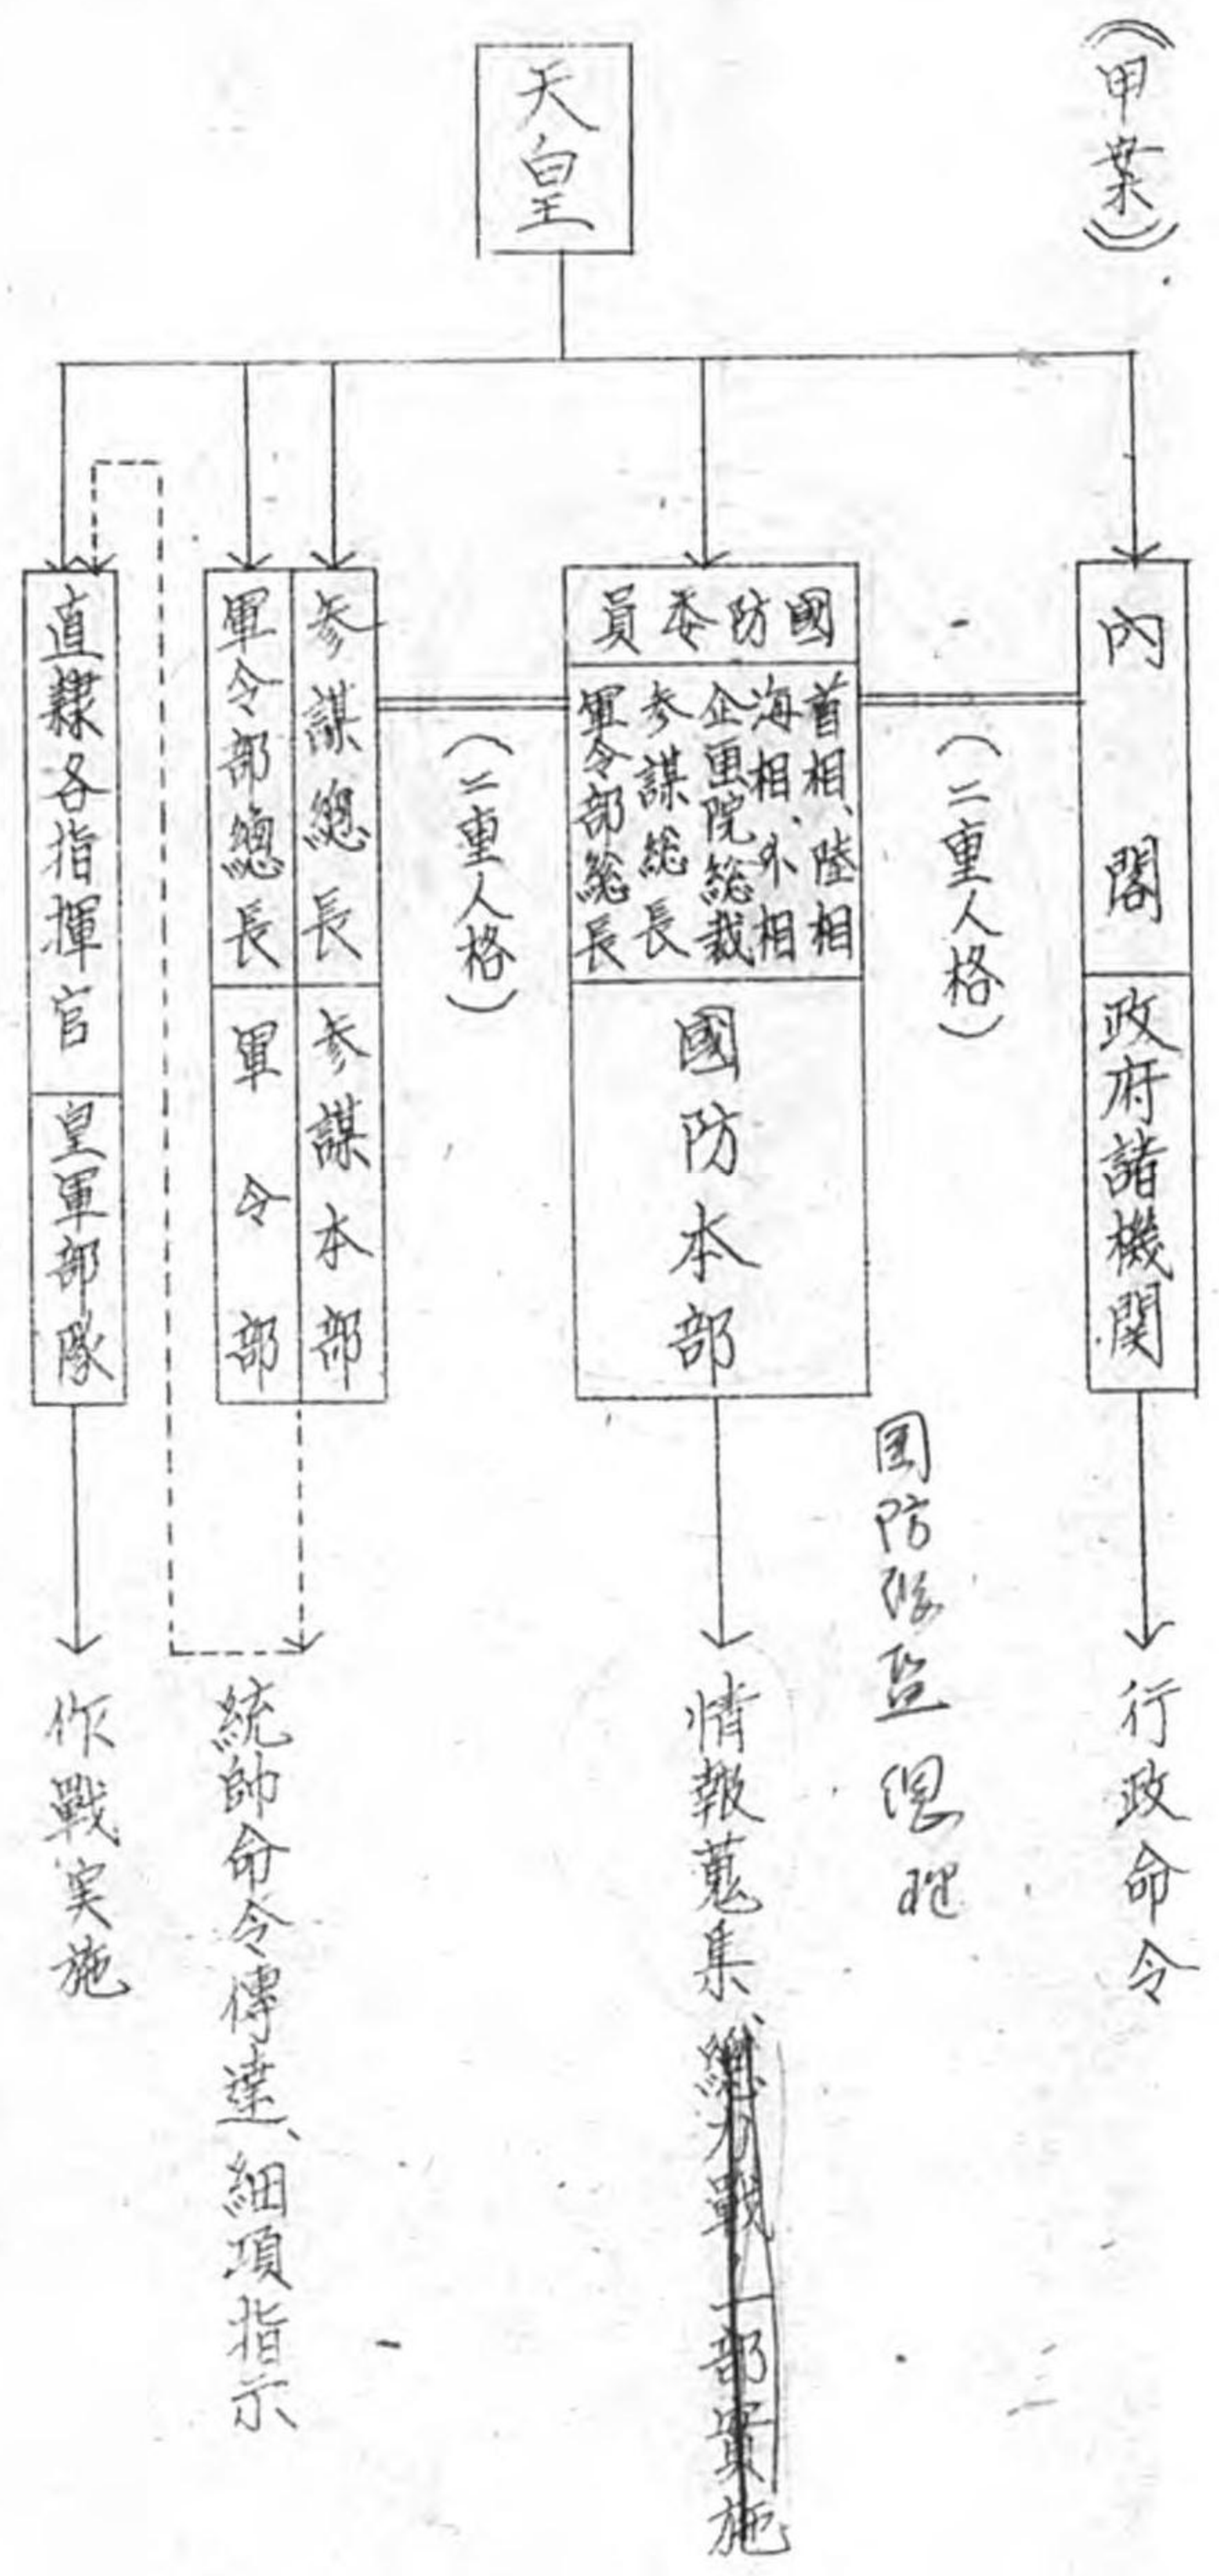 (甲案)
天皇
内閣
政府諸機関
行政命令
(二重人格)
國防委員
首相、陸相
海相、外相
企画院総裁
参謀総長
軍令部総長
國防本部
情報蒐集、總力戰一部實施
(二重人格)
参謀總長
参謀本部
軍令部總長
軍令部
統帥命令傳達、細項指示
直隷各指揮官
皇軍部隊
作戰実施